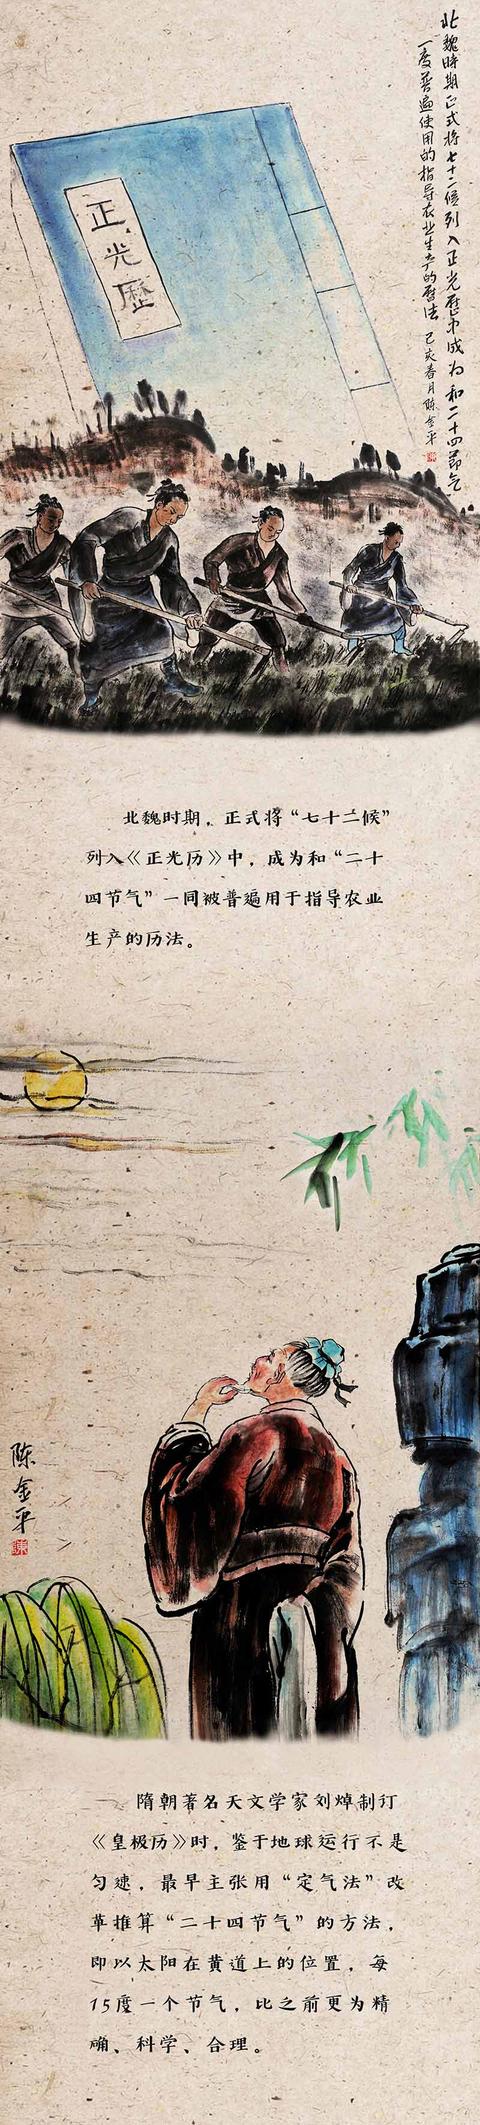 北魏時期正式将七十二候列入正光歷中成为和二十四節气
一度普遍使用的指导农业生产的歷法 己亥春月陈金平
正光歷
北魏时期，正式将“七十二候”
列入《正光历》中，成为和“二十
四节气”一同被普遍用于指导农业
生产的历法。
陈金平
隋朝著名天文学家刘焯制订
《皇极历》时，鉴于地球运行不是
匀速，最早主张用“定气法”改
革推算“二十四节气”的方法，
即以太阳在黄道上的位置，每
15度一个节气，比之前更为精
确、科学、合理。